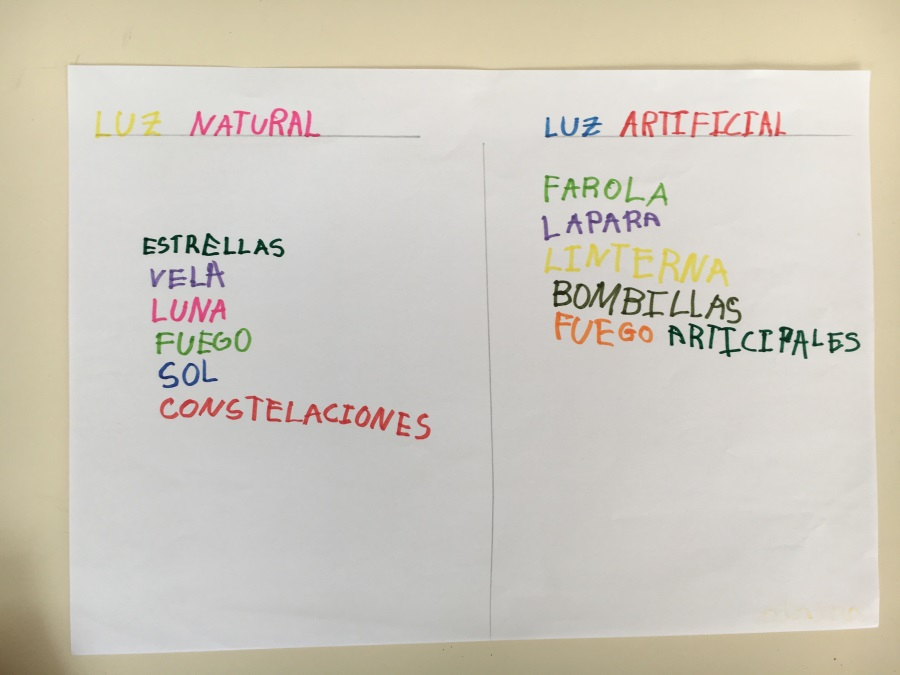 LUZ NATURAL
ESTRELLAS
VELA
LUNA
FUEGO
SOL
CONSTELACIONES
LUZ ARTIFICIAL
FAROLA
LAPARA
LINTERNA
BOMBILLAS
FUEGO ARTICIPALES